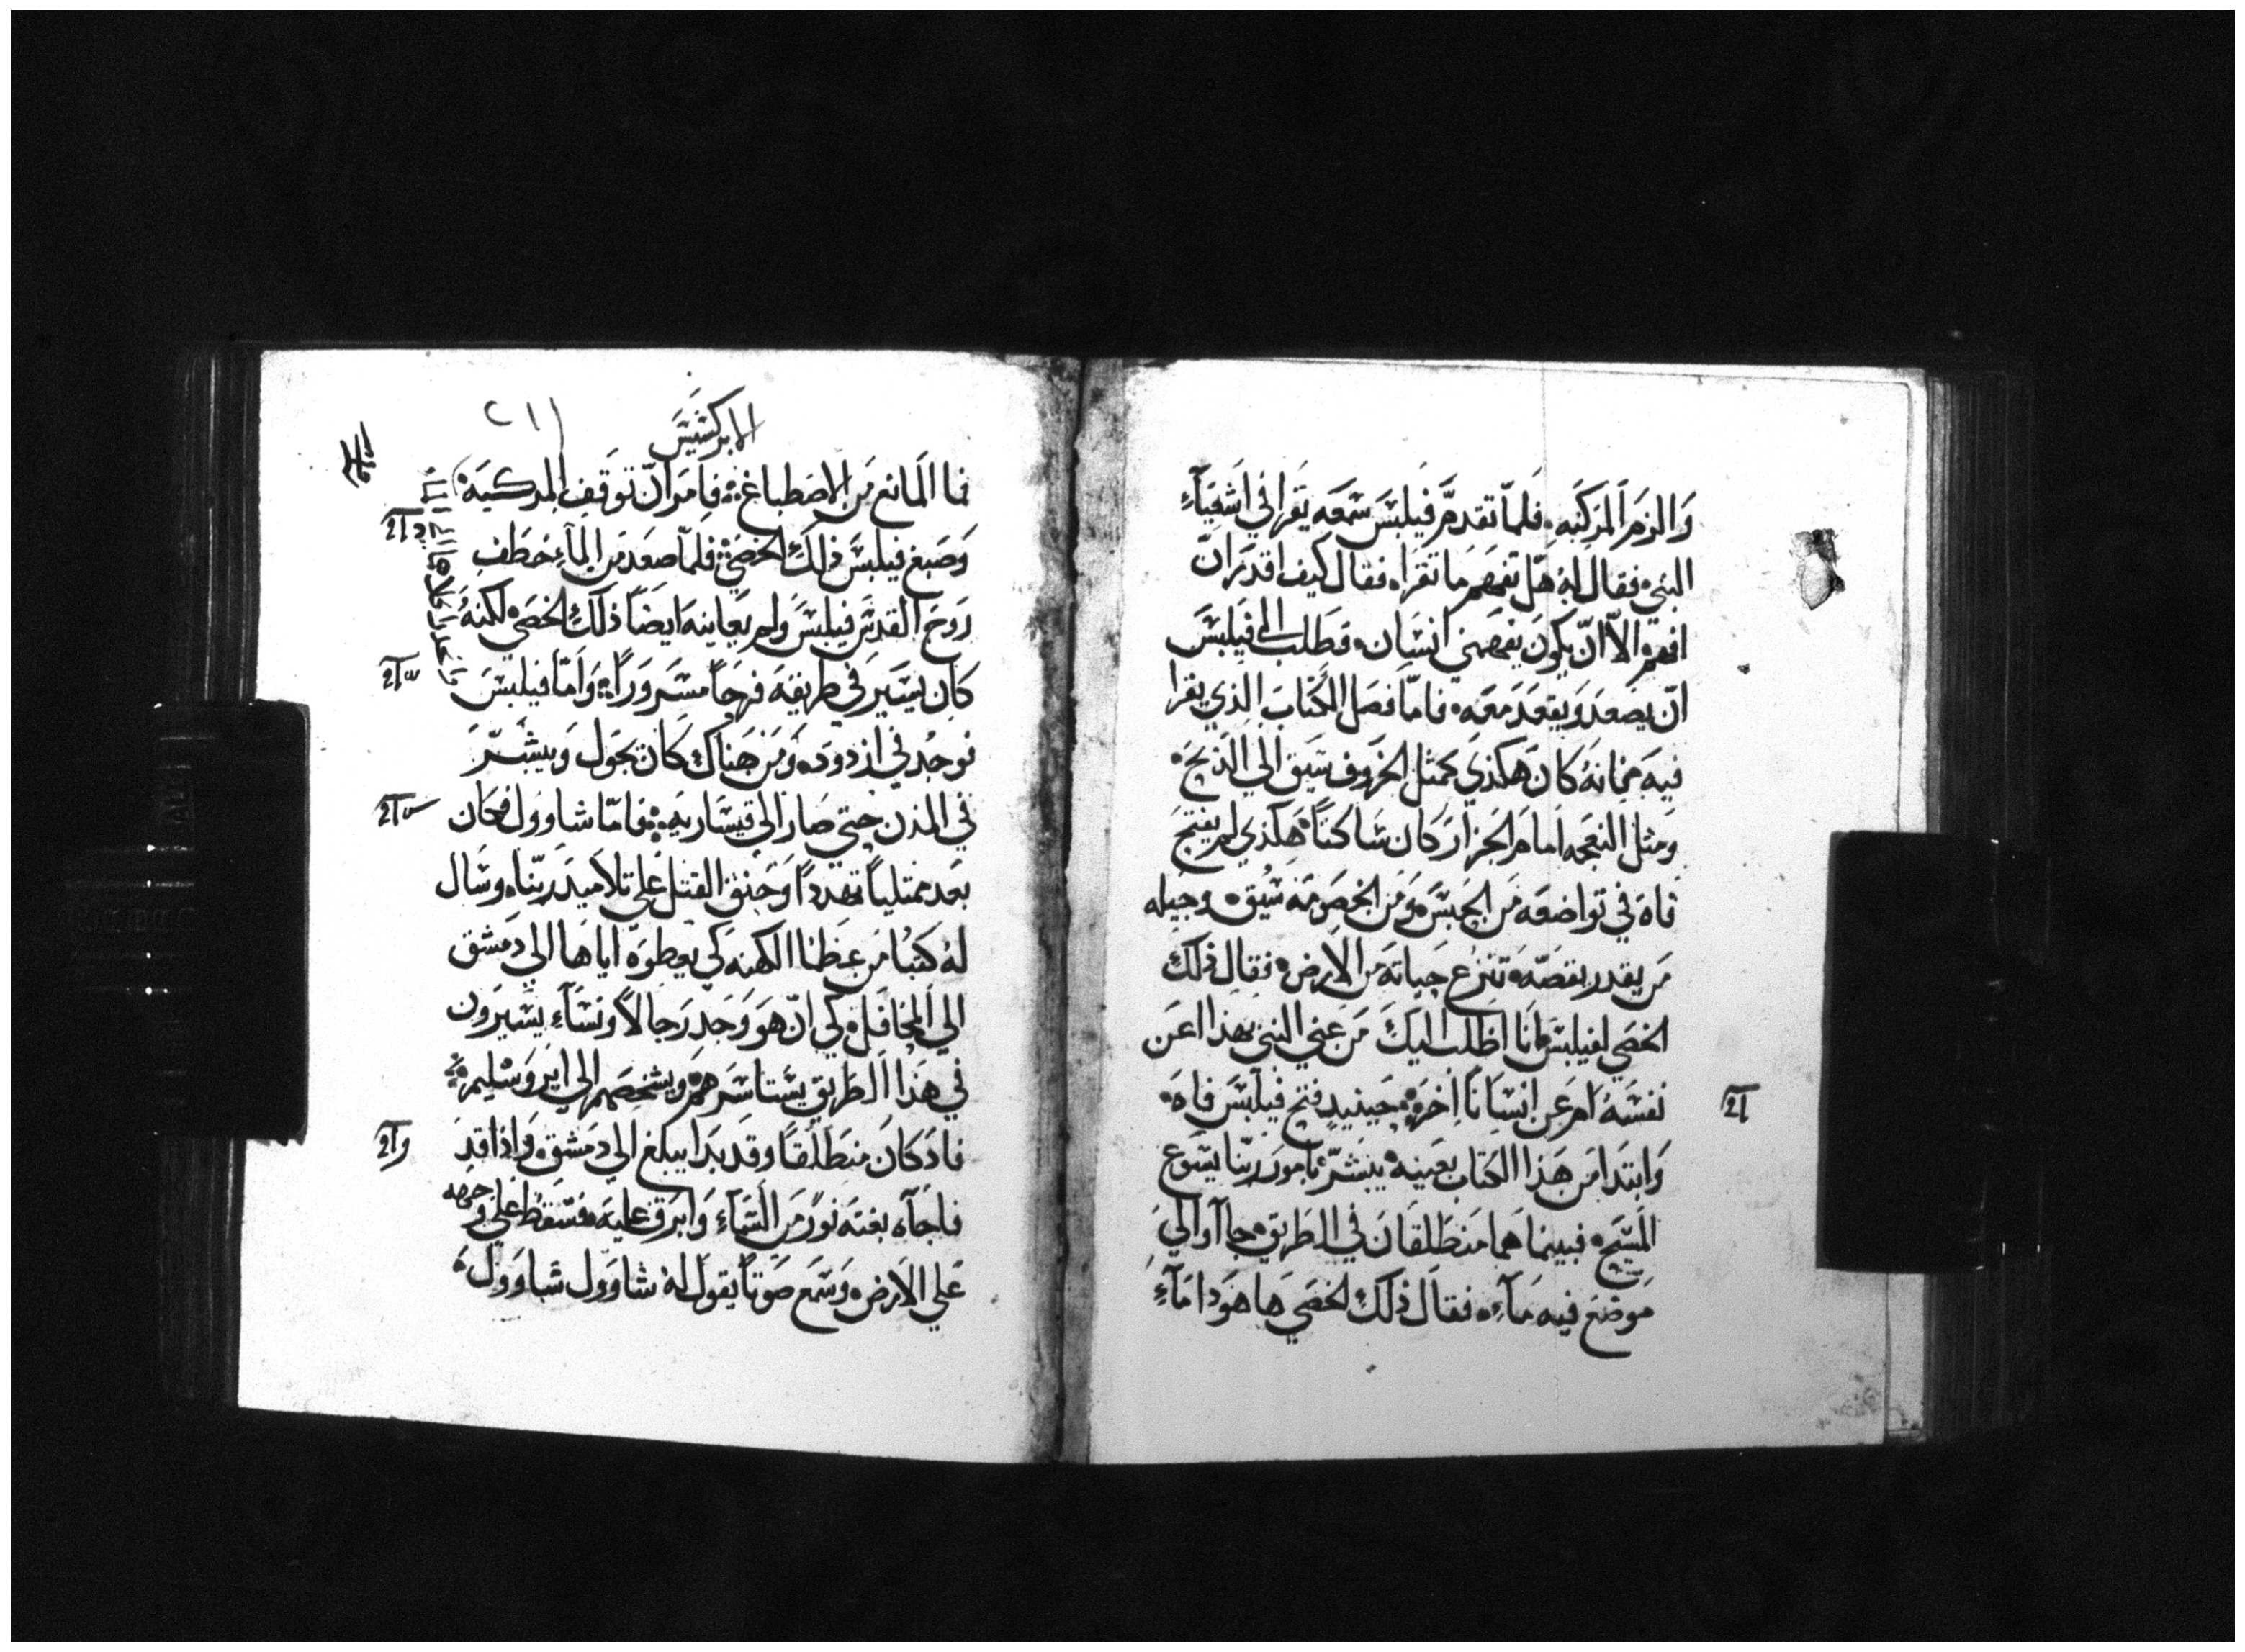 والزم المركبه فلما تقدم فيلبس سمعه يقرا في اشعياء
النبي فقال له هل تفهم ما تقراه فقال كيف اقدر ان
افهم الا ان يكون يفهمني انسان فطلب الى فيلبس
ان يصعد ويقعد معه فاما فصل الكتاب الذي يقرا
فيه فانه كان هكذي كمثل الخروف سيق الي الذبح
ومثل النعجه امام الجزار كان ساكتا هكذي لم يفتح
فاه في تواضعه من الحبس ومن الخصومه سيق وجيله
من يقدر يقصه تنزع حياته من الارض فقال ذلك
الخصي لفيلبس انا اطلب اليك من عني النبي بهذا اعن
نفسه ام عن انسانا اخر حينيد فتح فيلبس فاه
وابتدا من هذا الكتاب بعينه يبشره بامور ربنا يسوع
المسيح فبينما هما منطلقان في الطريق جاآ والي
موضع فيه ماء فقال ذلك الخصي ها هو دا ماء
الابركسيس
٢١١
فما المانع من الاصطباغ فامر ان توقف المركبه
وصبغ فيلبس ذلك الخصي فلما صعد من الماء خطف
روح القدس فيلبس ولم يعاينه ايضا ذلك الخصي لكنه
كان يسير في طريقه فرحا مسرورا واما فيلبس
فوجد في ازدود ومن هناك كان يجول ويبشر
في المدن حتي صار الى قيساريه فاما شاوول فكان
بعد ممتليا تهددا وحنق القتل علي تلاميد ربنا وسال
له كتبا من عظما الكهنه كي يعطوه اياها الي دمشق
الي المحافل كي ان هو وجد رجالا ونساء يسيرون
في هذا الطريق يستاسرهم ويشخصهم الي ايروشليم
فاد كان منطلقا وقد بدا يبلغ الي دمشق واذا قد
فاجآه بغته نور من السماء وابرق عليه فسقط علي وجهه
علي الارض وسمع صوتا يقول له شاوول شاوول